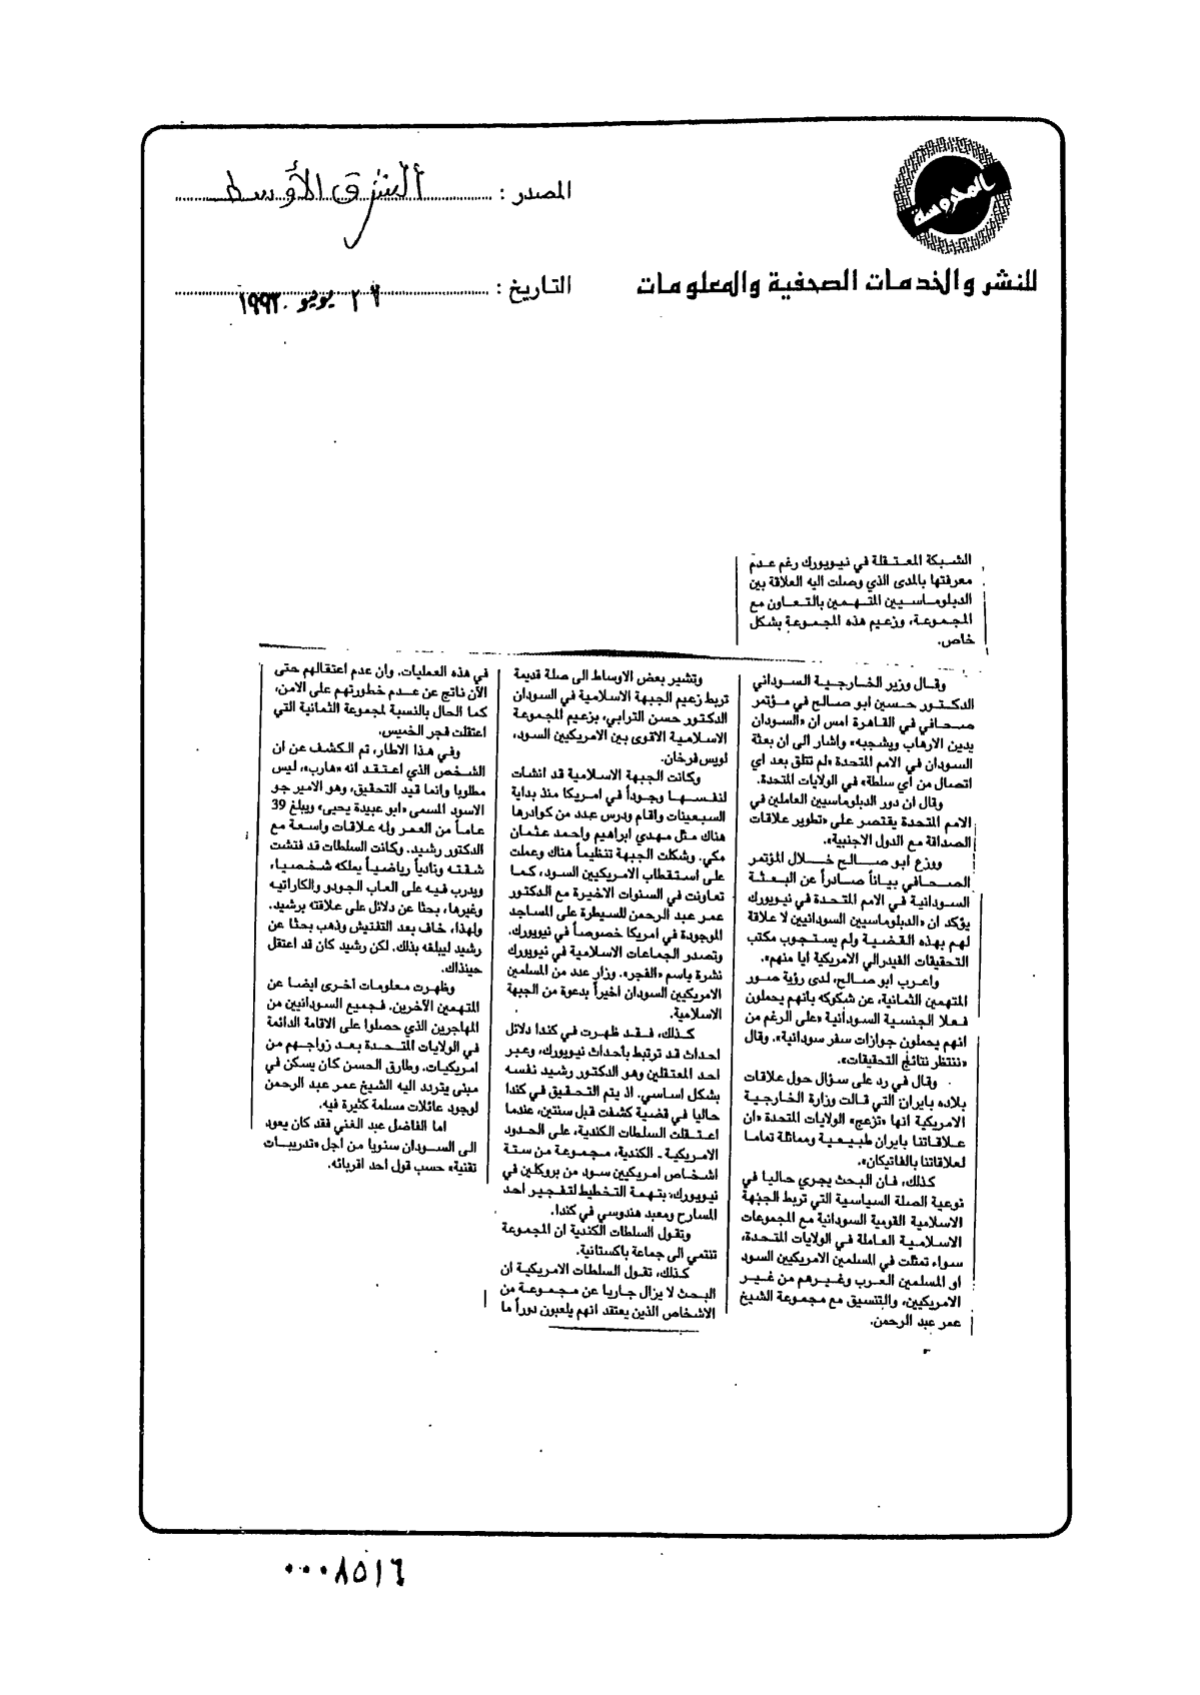 المحروسة
للنشر والخدمات الصحفية والمعلومات
المصدر : الشرق الأوسط
التاريخ : ٢٦ يونيو ١٩٩٣
الشبكة المعتقلة في نيويورك رغم عدم
معرفتها بالمدى الذي وصلت اليه العلاقة بين
الدبلوماسيين المتهمين بالتعاون مع
المجموعة، وزعيم هذه المجموعة بشكل
خاص.
وقال وزير الخارجية السوداني
الدكتور حسين ابو صالح في مؤتمر
صحافي في القاهرة امس ان «السودان
يدين الارهاب ويشجبه» واشار الى ان بعثة
السودان في الامم المتحدة «لم تتلق بعد اي
اتصال من أي سلطة» في الولايات المتحدة.
وقال ان دور الدبلوماسيين العاملين في
الامم المتحدة يقتصر على «تطوير علاقات
الصداقة مع الدول الاجنبية».
ووزع ابو صالح خلال المؤتمر
الصحافي بياناً صادراً عن البعثة
السودانية في الامم المتحدة في نيويورك
يؤكد ان «الدبلوماسيين السودانيين لا علاقة
لهم بهذه القضية ولم يستجوب مكتب
التحقيقات الفيدرالي الامريكية ايا منهم».
واعرب ابو صالح، لدى رؤية صور
المتهمين الثمانية، عن شكوكه بانهم يحملون
فعلا الجنسية السودانية «على الرغم من
انهم يحملون جوازات سفر سودانية». وقال
«ننتظر نتائج التحقيقات».
وقال في رد على سؤال حول علاقات
بلاده بايران التي قالت وزارة الخارجية
الامريكية انها «تزعج» الولايات المتحدة «ان
علاقاتنا بايران طبيعية ومماثلة تماما
لعلاقاتنا بالفاتيكان».
كذلك، فان البحث يجري حاليا في
نوعية الصلة السياسية التي تربط الجبهة
الاسلامية القومية السودانية مع المجموعات
الاسلامية العاملة في الولايات المتحدة،
سواء تمثلت في المسلمين الامريكيين السود
او المسلمين العرب وغيرهم من غير
الامريكيين، والتنسيق مع مجموعة الشيخ
عمر عبد الرحمن.
وتشير بعض الاوساط الى صلة قديمة
تربط زعيم الجبهة الاسلامية في السودان
الدكتور حسن الترابي، بزعيم المجموعة
الاسلامية الاقوى بين الامريكيين السود،
لويس فرخان.
وكانت الجبهة الاسلامية قد انشات
لنفسها وجوداً في امريكا منذ بداية
السبعينات واقام ودرس عدد من كوادرها
هناك مثل مهدي ابراهيم واحمد عثمان
مكي. وشكلت الجبهة تنظيماً هناك وعملت
على استقطاب الامريكيين السود، كما
تعاونت في السنوات الاخيرة مع الدكتور
عمر عبد الرحمن للسيطرة على المساجد
الموجودة في امريكا خصوصاً في نيويورك.
وتصدر الجماعات الاسلامية في نيويورك
نشرة باسم «الفجر». وزار عدد من المسلمين
الامريكيين السودان اخيراً بدعوة من الجبهة
الاسلامية.
كذلك، فقد ظهرت في كندا دلائل
احداث قد ترتبط بأحداث نيويورك، وعبر
احد المعتقلين وهو الدكتور رشيد نفسه
بشكل اساسي. اذ يتم التحقيق في كندا
حاليا في قضية كشفت قبل سنتين، عندما
اعتقلت السلطات الكندية، على الحدود
الامريكية ـ الكندية، مجموعة من ستة
اشخاص امريكيين سود من بروكلين في
نيويورك، بتهمة التخطيط لتفجير احد
المسارح ومعبد هندوسي في كندا.
وتقول السلطات الكندية ان المجموعة
تنتمي الى جماعة باكستانية.
كذلك، تقول السلطات الامريكية ان
البحث لا يزال جاريا عن مجموعة من
الاشخاص الذين يعتقد انهم يلعبون دوراً ما
في هذه العمليات. وان عدم اعتقالهم حتى
الآن ناتج عن عدم خطورتهم على الامن،
كما الحال بالنسبة لمجموعة الثمانية التي
اعتقلت فجر الخميس.
وفي هذا الاطار، تم الكشف عن ان
الشخص الذي اعتقد انه «هارب»، ليس
مطلوبا وانما قيد التحقيق، وهو الامير جو
الاسود المسمى «ابو عبيدة يحيى» ويبلغ 39
عاماً من العمر وله علاقات واسعة مع
الدكتور رشيد. وكانت السلطات قد فتشت
شقته ونادياً رياضياً يملكه شخصيا،
ويدرب فيه على العاب الجودو والكاراتيه
وغيرها، بحثا عن دلائل على علاقته برشيد.
ولهذا، خاف بعد التفتيش وذهب بحثا عن
رشيد ليبلغه بذلك. لكن رشيد كان قد اعتقل
حينذاك.
وظهرت معلومات أخرى ايضا عن
المتهمين الآخرين. فجميع السودانيين من
المهاجرين الذي حصلوا على الاقامة الدائمة
في الولايات المتحدة بعد زواجهم من
امريكيات. وطارق الحسن كان يسكن في
مبنى يتردد اليه الشيخ عمر عبد الرحمن
لوجود عائلات مسلمة كثيرة فيه.
اما الفاضل عبد الغني فقد كان يعود
الى السودان سنويا من أجل «تدريبات
تقنية» حسب قول احد اقربائه.
٠٠٠٨٥١٦